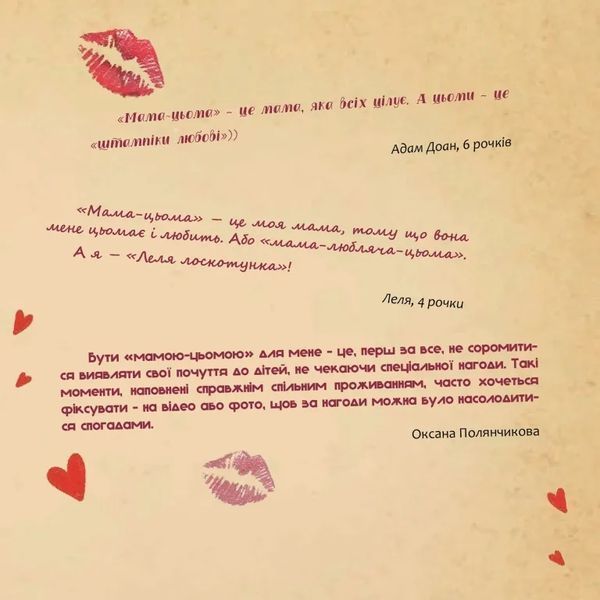 «Мама-цьома» - це мама, яка всіх цілує. А цьоми - це
«штампіки любові»))
Адам Доан, 6 рочків
«Мама-цьома» — це моя мама, тому що вона
мене цьомає і любить. Або «мама-любляча-цьома».
А я — «Леля лоскотунка»!
Леля, 4 рочки
Бути «мамою-цьомою» для мене - це, перш за все, не соромити-
ся виявляти свої почуття до дітей, не чекаючи спеціальної нагоди. Такі
моменти, наповнені справжнім спільним проживанням, часто хочеться
фіксувати - на відео або фото, щоб за нагоди можна було насолодити-
ся спогадами.
Оксана Полянчикова